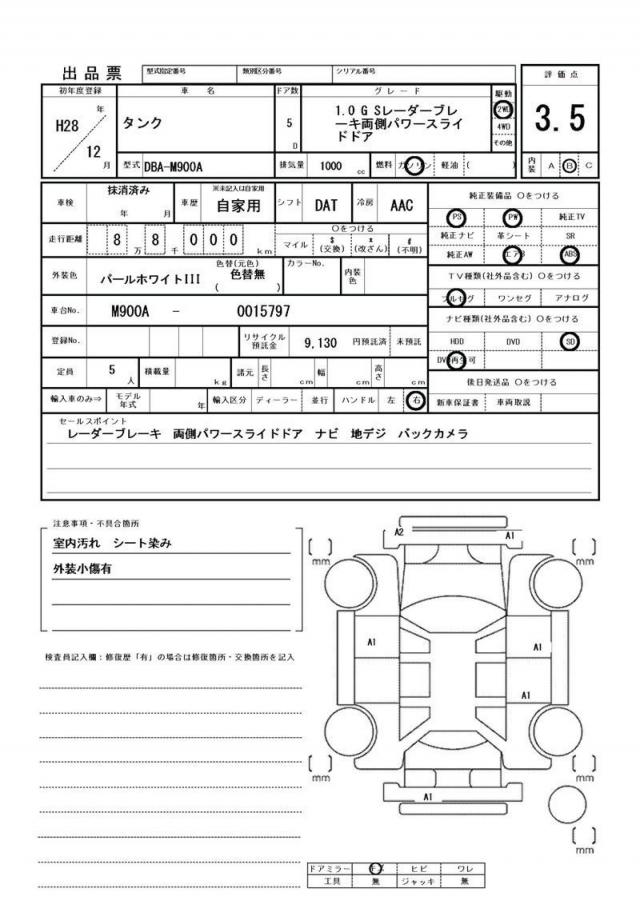 出品票 型式指定番号 類別区分番号 シリアル番号 評価点
初年度登録 車名 ドア数 グレード 駆動
H28 年 タンク 5 D 1.0 G Sレーダーブレ 2WD 3.5
ーキ両側パワースライ 4WD
12 月 ドドア その他
型式 DBA-M900A 排気量 1000 cc 燃料 ガソリン 軽油 ( ) 内装 A B C
車検 抹消済み 年 月 車歴 ※未記入は自家用 自家用 シフト DAT 冷房 AAC 純正装備品 〇をつける
走行距離 8 万 8 千 0 0 0 km 〇をつける PS PW 純正TV
マイル $ (交換) * (改ざん) # (不明) 純正ナビ 革シート SR
外装色 パールホワイトIII 色替(元色) 色替無 ( ) カラーNo. 内装色 純正AW エアB ABS
TV種類(社外品含む) 〇をつける
車台No. M900A - 0015797 フルセグ ワンセグ アナログ
ナビ種類(社外品含む) 〇をつける
登録No. リサイクル預託金 9,130 円預託済 未預託 HDD DVD SD
定員 5 人 積載量 kg 諸元 長さ cm 幅 cm 高さ cm DVD再生可
後日発送品 〇をつける
輸入車のみ⇒ モデル年式 年 輸入区分 ディーラー 並行 ハンドル 左 右 新車保証書 車両取説
セールスポイント
レーダーブレーキ 両側パワースライドドア ナビ 地デジ バックカメラ
注意事項・不具合箇所
室内汚れ シート染み
外装小傷有
検査員記入欄：修復歴「有」の場合は修復箇所・交換箇所を記入
A2 A1
[ ] mm [ ] mm
A1 A1
A1
[ ] mm [ ] mm
A1
[ ] mm
ドアミラー キズ ヒビ ワレ
工具 無 ジャッキ 無